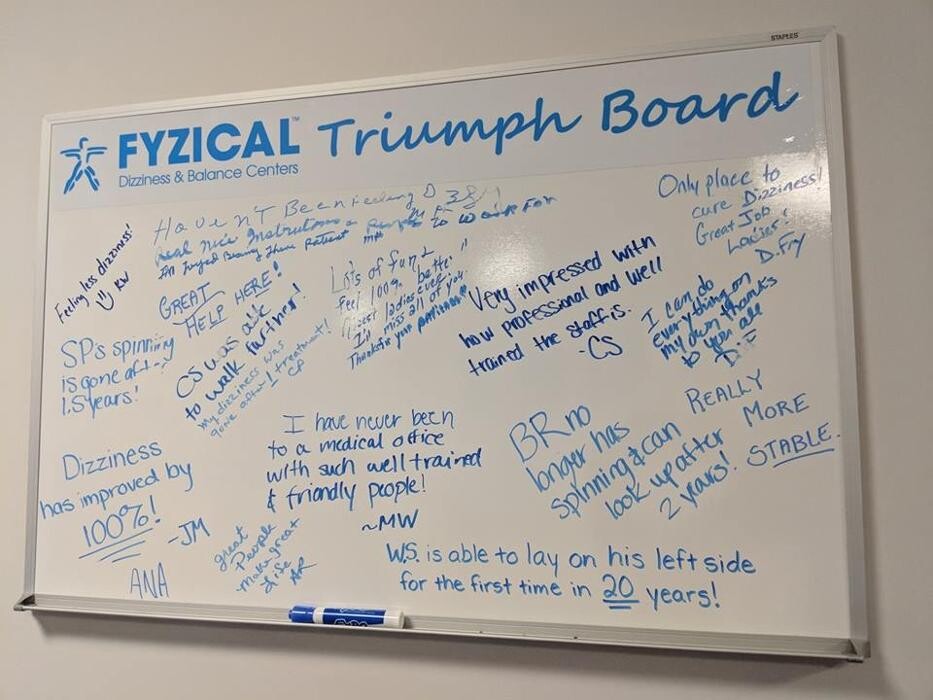 STAPLES
FYZICAL™
Dizziness & Balance Centers
Triumph Board
Haven't Been Feeling
Real Nice Instrutions
to Work For
Only place to
cure Dizziness!
Great Job
Ladies!
D. Fry
Feeling less dizziness!
KW
GREAT
HELP HERE!
Lots of fun
Feel 100% better
Nicest ladies ever
I'll miss all of you
Thanks for your
Very impressed with
how professional and well
trained the staff is.
-CS
I can do
everything on
my own thanks
to you all
D.F
SP's spinning
is gone after
1.5 years!
CS was able
to walk further!
my dizziness was
gone after 1 treatment!
CP
I have never been
to a medical office
with such well trained
& friendly people!
~MW
BR no
longer has
spinning & can
look up after
2 years!
REALLY
MORE
STABLE.
Dizziness
has improved by
100%!
-JM
great
People
make great
life
AR
ANA
W.S. is able to lay on his left side
for the first time in 20 years!
EXPO